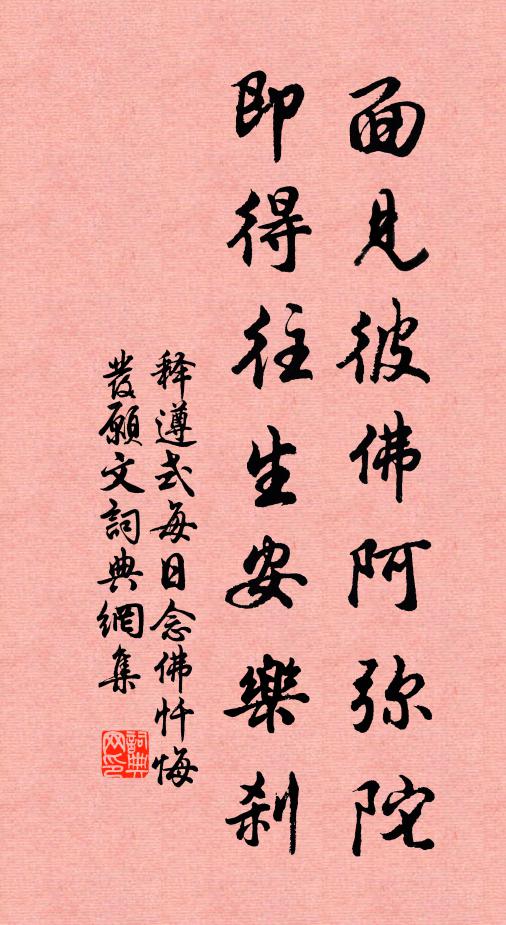 面見彼佛阿弥陀
即得往生安樂刹
释遵式每日念佛忏悔
發願文詞典網集
詞典網印